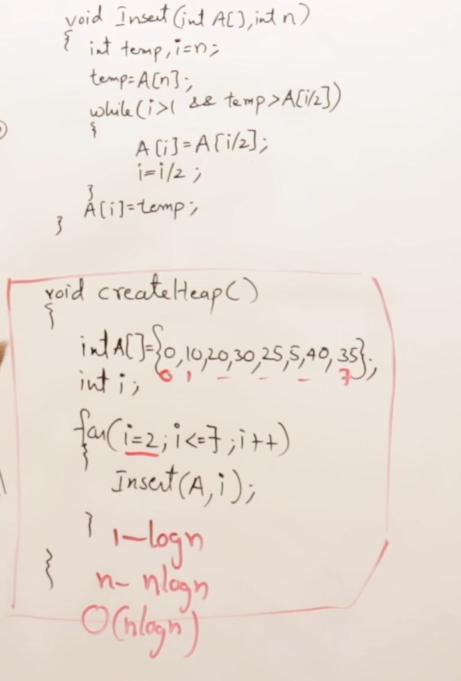 void Insert(int A[], int n)
{ int temp, i=n;
temp=A[n];
while(i>1 && temp>A[i/2])
{
A[i]=A[i/2];
i=i/2;
}
A[i]=temp;
}
void createHeap()
{
int A[]={0,10,20,30,25,5,40,35};
0 1 - - - 7
int i;
for(i=2;i<=7;i++)
{
Insert(A,i);
}
1-logn
}
n- nlogn
O(nlogn)